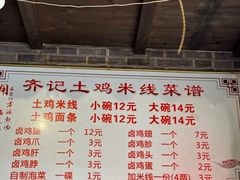 齐记土鸡米线菜谱
土鸡米线 小碗12元 大碗14元
土鸡面条 小碗12元 大碗14元
卤鸡腿 一个 12元 卤鸡翅 一个 7元
卤鸡爪 一个 3元 卤鸡胗 一个 3元
卤鸡肝 一个 3元 卤鸡头 一个 3元
卤鸡脖 一个 3元 卤鸡蛋 一个 2元
自制泡菜 一碟 1元 加米线一份(4两) 3元